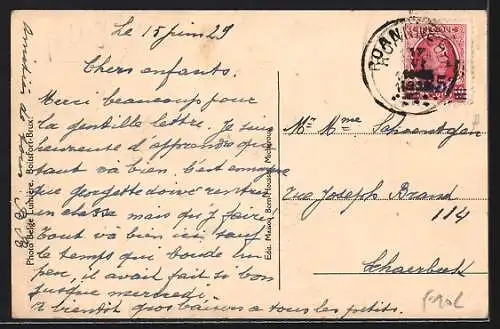 Le 15 juin 29
Chers enfants.
Merci beaucoup pour
la gentille lettre. Je suis
heureuse d'apprendre que
tout va bien. C'est
que Georgette doive rentrer
en classe mais qu'y faire
tout va bien ici, sauf
le temps qui boude un
peu, il avait fait si bon
jusque mercredi.
a bientôt gros baisers a tous les petits.
Photo Belge Lumière. Boitsfort-Brux.
Edit. Maison
Mr Mme
Rue Joseph Brand
114
Schaerbeek